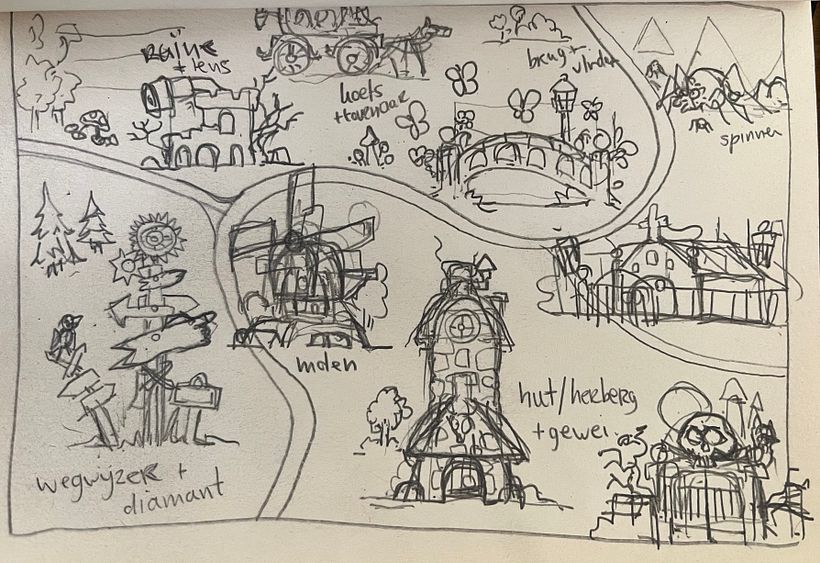 ruïne
+ lens
koets
+ tovenaar
brug +
vlinder
spinnen
molen
hut/herberg
+ gewei
wegwijzer +
diamant